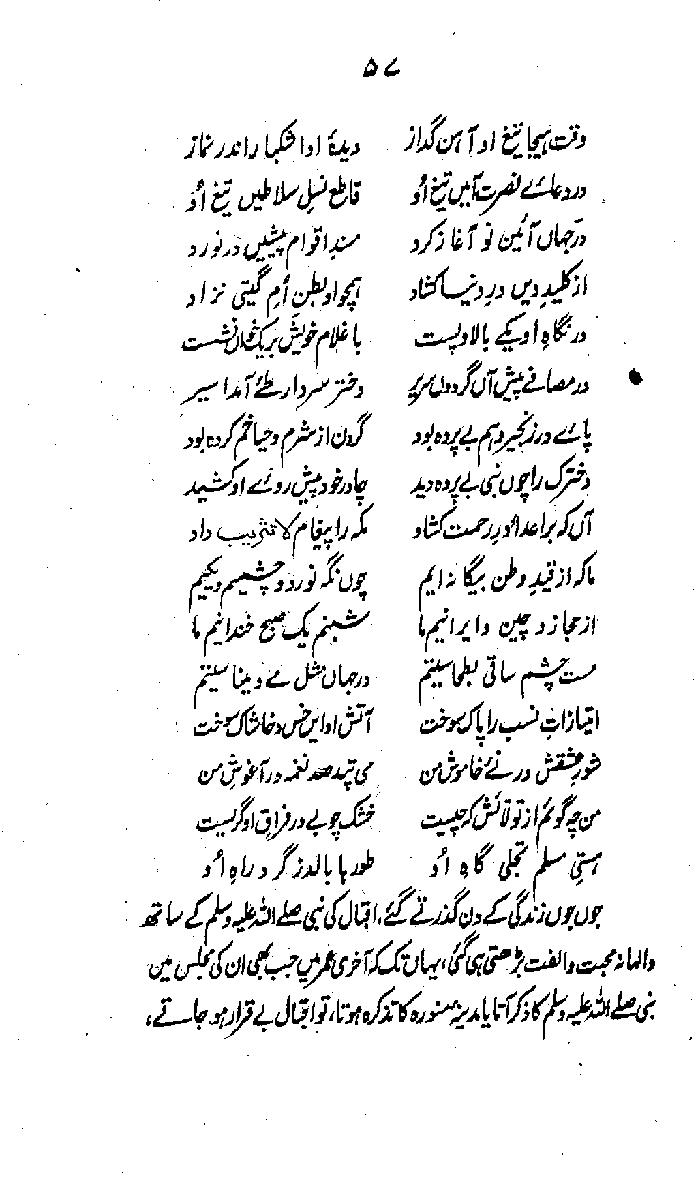 ۵۷
وقت ہیجا تیغ او آہن گداز دیدۂ او اشکبار اندر نماز
در دعائے نصرت آمیں تیغ اُو قاطع نسلِ سلاطیں تیغ اُو
درجہاں آئین نو آغاز کرد مسندِ اقوام پیشیں درنورد
از کلیدِ دیں درِ دنیا کشاد ہمچو او بطنِ اُمِ گیتی نزاد
در نگاہِ او یکے بالا و پست با غلامِ خویش بریک خواں نشست
در مصافے پیش آں گردوں سریر دخترِ سردارِ طے آمد اسیر
پائے در زنجیر و ہم بے پردہ بود گردن از شرم و حیا خم کردہ بود
دخترک را چوں نبی بے پردہ دید چادرِ خود پیش روئے او کشید
آں کہ بر اعدا درِ رحمت کشاد مکہ را پیغامِ لا تثریب داد
ما کہ از قیدِ وطن بیگانہ ایم چوں نگہ نورِ دو چشمیم و یکیم
از حجاز و چین و ایرانیم ما شبنم یک صبح خندانیم ما
مست چشمِ ساقی بطحا ستیم درجہاں مثلِ مے و مینا ستیم
امتیازاتِ نسب را پاک سوخت آتشِ او ایں خس و خاشاک سوخت
شورِ عشقش در نئے خاموشِ من می تپد صد نغمہ در آغوشِ من
من چہ گویم از تولائش کہ چیست خشک چوبے در فراقِ او گریست
ہستیِ مسلم تجلی گاہِ اُو طور ہا بالد ز گردِ راہِ اُو
جوں جوں زندگی کے دن گذرتے گئے، اقبال کی نبی صلے اللہ علیہ وسلم کے ساتھ
والہانہ محبت و الفت بڑھتی ہی گئی، یہاں تک کہ آخری عمر میں جب بھی ان کی مجلس میں
نبی صلے اللہ علیہ وسلم کا ذکر آتا یا مدینہ منورہ کا تذکرہ ہوتا، تو اقبال بے قرار ہو جاتے،